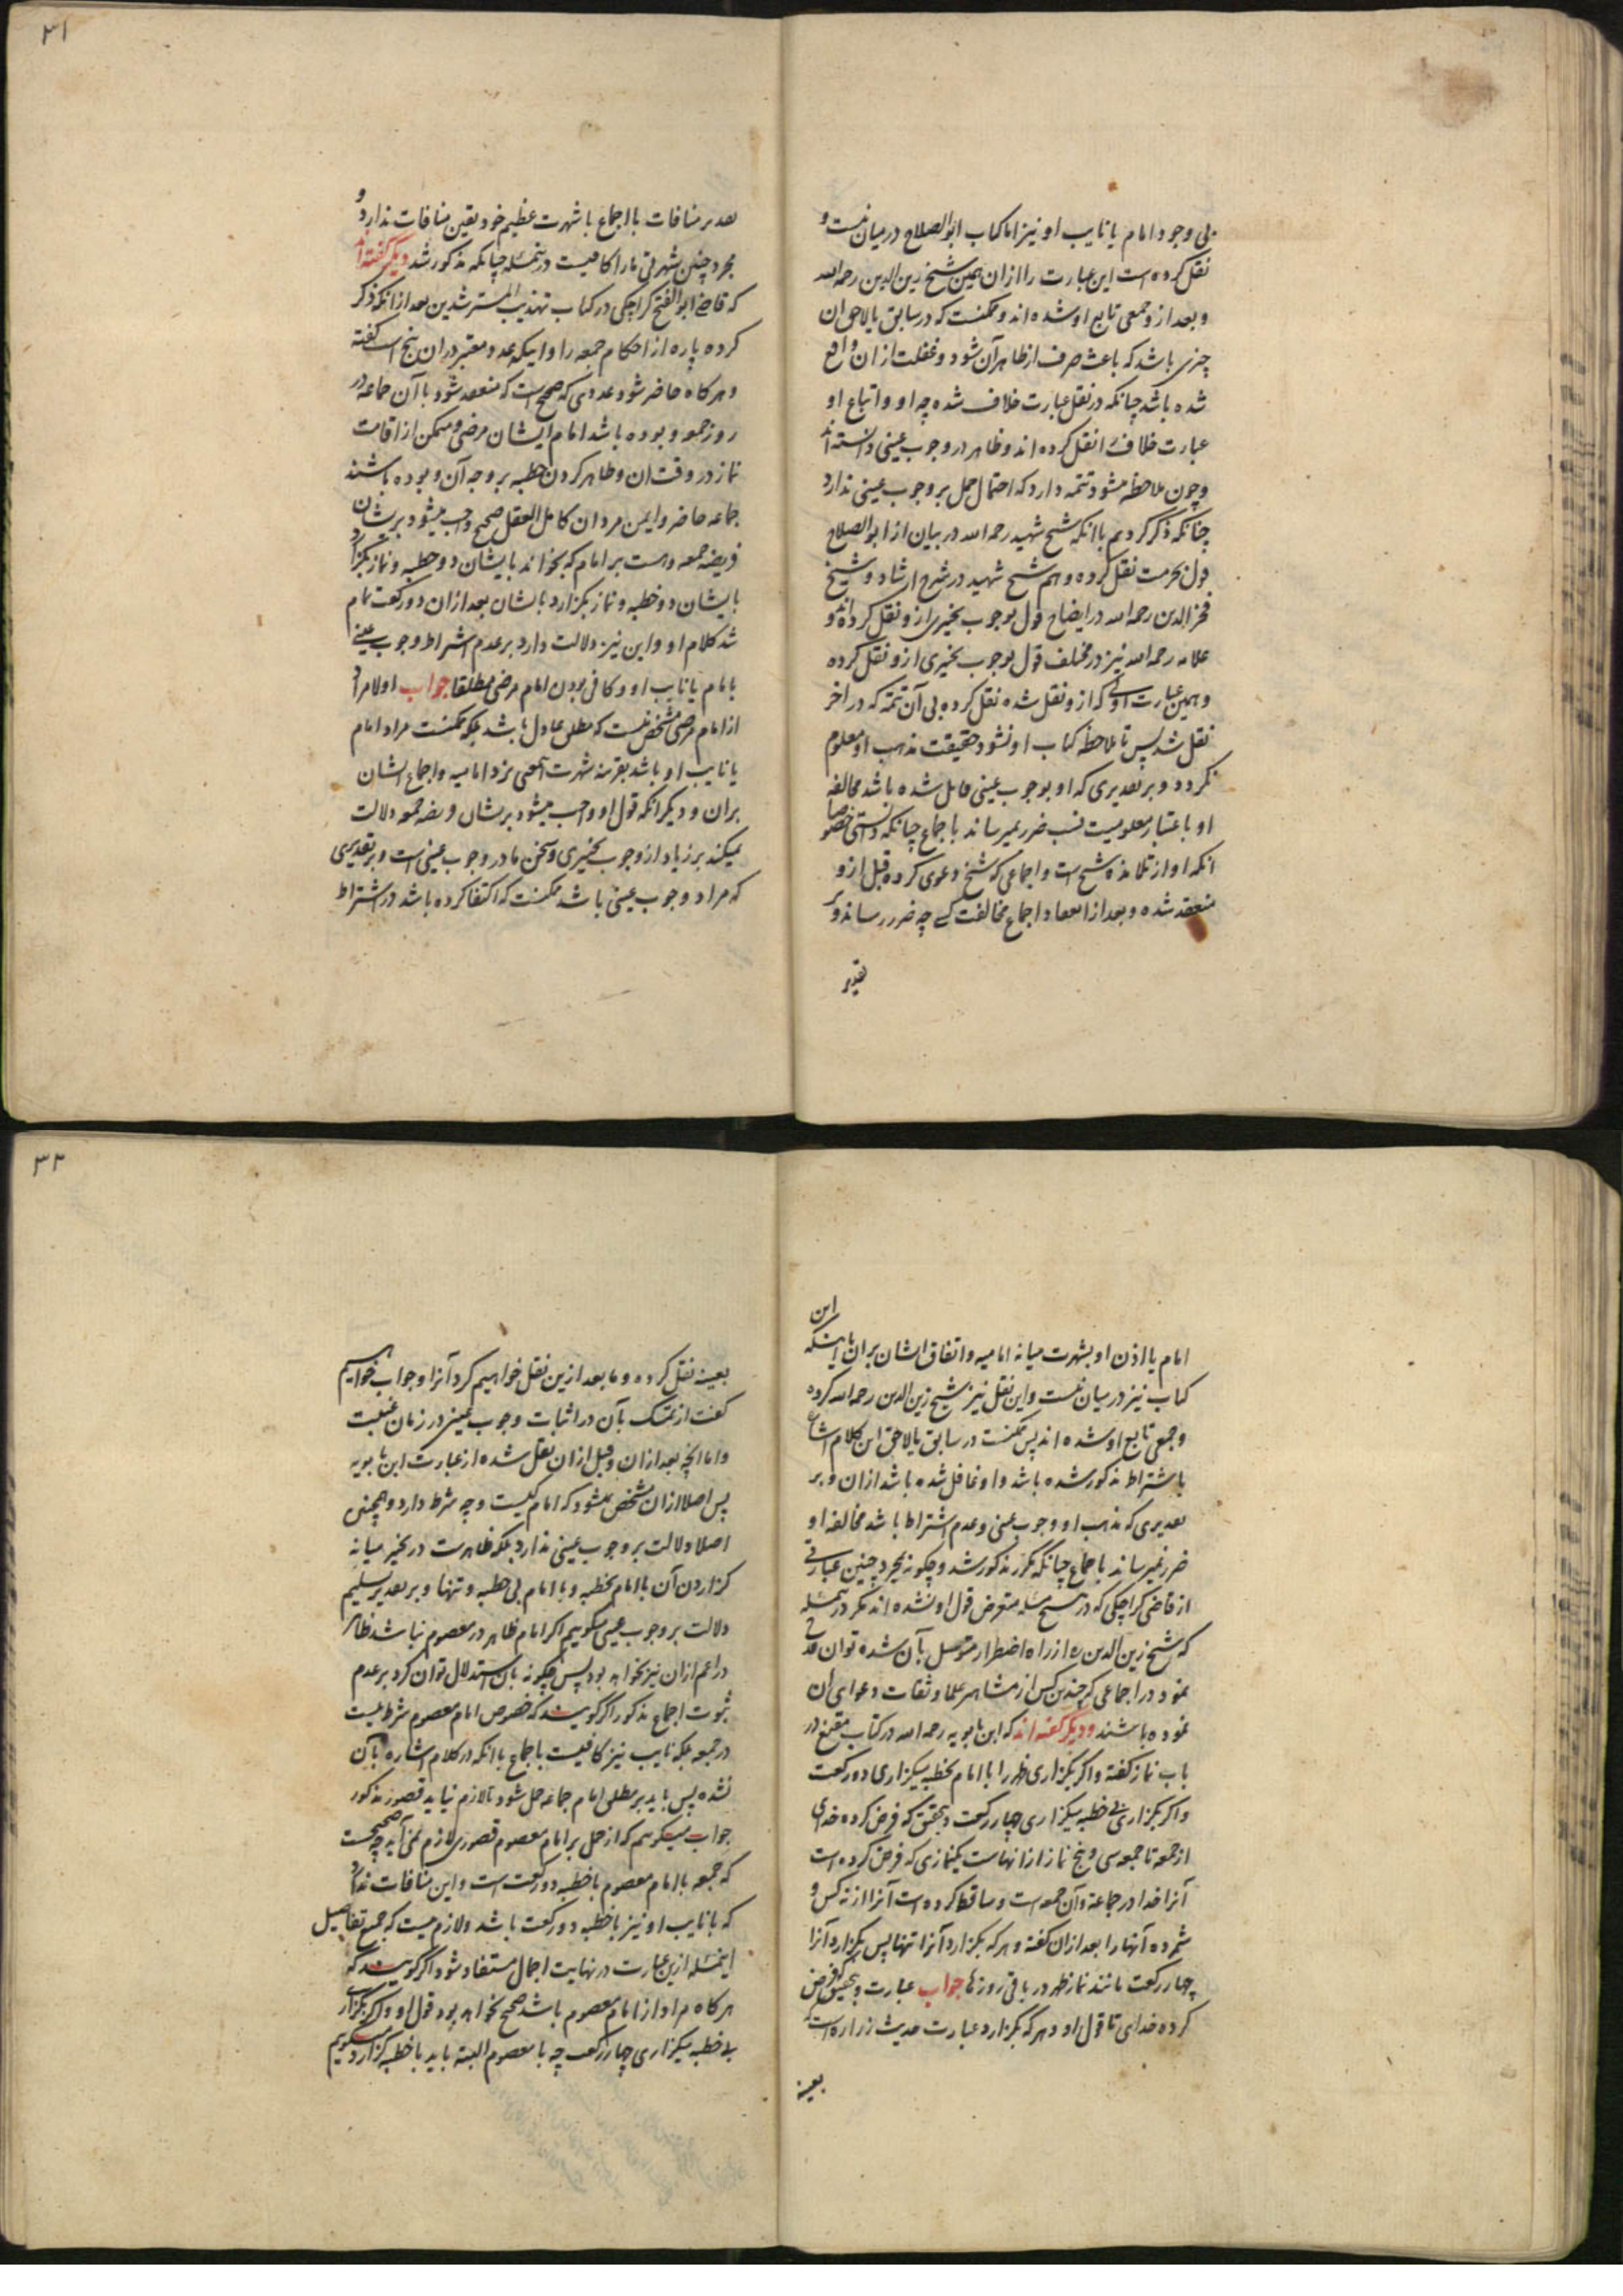 بی وجود امام یا نایب او نیز اما کتاب ابوالصلاح در میان نیست و
نقل کرده است این عبارت را ازان همین شیخ زین الدین رحمه الله
و بعد از و جمعی تابع او شده اند و ممکنست که در سابق یا لاحق ان
چیزی باشد که باعث صرف از ظاهر آن شود و غفلت از ان واقع
شده باشد چنانکه در نقل عبارت خلاف شده چه او و اتباع او
عبارت خلاف را نقل کرده اند و ظاهر در وجوب عینی دانسته اند
و چون ملاحظه میشود تتمه دارد که احتمال حمل بر وجوب عینی ندارد
چنانکه ذکر کردیم با انکه شیخ شهید رحمه الله در بیان از ابوالصلاح
قول بحرمت نقل کرده و هم شیخ شهید در شرح ارشاد و شیخ
فخر الدین رحمه الله در ایضاح قول بوجوب تخییری از و نقل کرده اند و
علامه رحمه الله نیز در مختلف قول بوجوب تخییری از و نقل کرده
و همین عبارت اولی که از و نقل شده نقل کرده بی آن تتمه که در اخر
نقل شد پس تا ملاحظه کتاب او نشود حقیقت مذهب او معلوم
نکردد و بر تقدیری که او بوجوب عینی قایل شده باشد مخالفه
او باعتبار معلومیت نسب ضرر نمیرساند باجماع چنانکه دانستی خصوصا
انکه او از تلامذه شیخ است و اجماعی که شیخ دعوی کرده قبل از و
منعقد شده و بعد از انعقاد اجماع مخالفت کسی چه ضرر رساند و بر
تقدیر
۳۱
تقدیر منافات با اجماع با شهرت عظیم خود یقین منافات ندارد و
مجرد چنین شهرتی ما را کافیست درینمسئله چنانکه مذکور شد دیکر کفته اند
که قاضی ابوالفتح کراجکی در کتاب تهذیب المسترشدین بعد از انکه ذکر
کرده پاره از احکام جمعه را و اینکه عدد معتبر در ان پنج است کفته
و هر کاه حاضر شود عددی که صحیح است که منعقد شود با آن جماعه در
روز جمعه و بوده باشد امام ایشان مرضی و متمکن از اقامت
نماز در وقت ان و ظاهر کردن خطبه بر وجه آن و بوده باشند
جماعه حاضر و ایمن مردان کامل العقل صحیح واجب میشود بر یشان
فریضه جمعه و است بر امام که بخواند بایشان دو خطبه و نماز بکزارد
بایشان دو خطبه و نماز بکزارد بایشان بعد ازان دو رکعت تمام
شد کلام او و این نیز دلالت دارد بر عدم اشتراط وجوب عینی
بامام یا نایب او و کافی بودن امام مرضی مطلقا جواب اولا مراد
از امام مرضی مشخص نیست که مطلق عادل باشد بلکه ممکنست مراد امام
یا نایب او باشد بقرینه شهرت آنمعنی نزد امامیه و اجماع ایشان
بران و دیکر انکه قول او واجب میشود بر یشان فریضه جمعه دلالت
نمیکند بر زیاد از وجوب تخییری و سخن ما در وجوب عینی است و بر تقدیری
که مراد وجوب عینی باشد ممکنست که اکتفا کرده باشد در اشتراط
امام یا اذن او بشهرت میانه امامیه و اتفاق ایشان بران با اینکه این
کتاب نیز در میان نیست و این نقل نیز شیخ زین الدین رحمه الله کرده
و جمعی تابع او شده اند پس ممکنست در سابق یا لاحق این کلام اشاره
باشتراط مذکور شده باشد و او غافل شده باشد ازان و بر
تقدیری که مذهب او وجوب عینی و عدم اشتراط باشد مخالفه او
ضرر نمیرساند باجماع چنانکه مکرر مذکور شد و چکونه بمجرد چنین عبارتی
از قاضی کراجکی که در هیچ مسئله متعرض قول او نشده اند مکر درینمسئله
که شیخ زین الدین ره از راه اضطرار متوسل بآن شده توان قدحی
نمود در اجماعی که چندین کس از مشاهیر علما و ثقات دعوای ان
نموده باشند و دیکر کفته اند که ابن بابویه رحمه الله در کتاب مقنع در
باب نماز کفته و اکر بکزاری ظهر را با امام بخطبه میکزاری دو رکعت
و اکر بکزاری بی خطبه میکزاری چهار رکعت و بتحقیق که فرض کرده خدای
از جمعه تا جمعه سی و پنج نماز از انهاست یکنمازی که فرض کرده است
آنرا خدا در جماعة و آن جمعه است و ساقط کرده است آنرا از نه کس و
شمرده آنها را بعد ازان کفته و هر که بکزارد آنرا تنها پس بکزارد آنرا
چهار رکعت مانند نماز ظهر در باقی روزها جواب عبارت و بتحقیق که فرض
کرده خدای تا قول او و هر که بکزارد عبارت حدیث زراره است که
بعینه
۳۲
بعینه نقل کرده و ما بعد ازین نقل خواهیم کرد آنرا و جواب خواهیم
کفت از تمسک بآن در اثبات وجوب عینی در زمان غیبت
و اما انچه بعد ازان و قبل ازان نقل شده از عبارت ابن بابویه
پس اصلا ازان مشخص نمیشود که امام کیست و چه شرط دارد و همچنین
اصلا دلالت بر وجوب عینی ندارد بلکه ظاهرست در تخییر میانه
کزاردن آن با امام بخطبه و با امام بی خطبه و تنها و بر تقدیر تسلیم
دلالت بر وجوب عینی میکوییم اکر امام ظاهر در معصوم نباشد ظاهر
در اعم ازان نیز نخواهد بود پس چکونه بان استدلال توان کرد بر عدم
ثبوت اجماع مذکور اکر کویند که خصوص امام معصوم شرط نیست
در جمعه بلکه نایب نیز کافیست باجماع با انکه در کلام اشاره بآن
نشده پس باید بر مطلق امام جماعه حمل شود تا لازم نیاید قصور مذکور
جواب میکوییم که از حمل بر امام معصوم قصوری لازم نمی آید چه صحیحست
که جمعه با امام معصوم با خطبه دو رکعت است و این منافات ندارد
که با نایب او نیز با خطبه دو رکعت باشد و لازم نیست که جمیع تفاصیل
اینمسئله ازین عبارت در نهایت اجمال مستفاد شود اکر کویند که
هر کاه مراد از امام معصوم باشد صحیح نخواهد بود قول او و اکر بکزاری
بی خطبه میکزاری چهار رکعت چه با معصوم البته باید با خطبه کزارد میکوییم